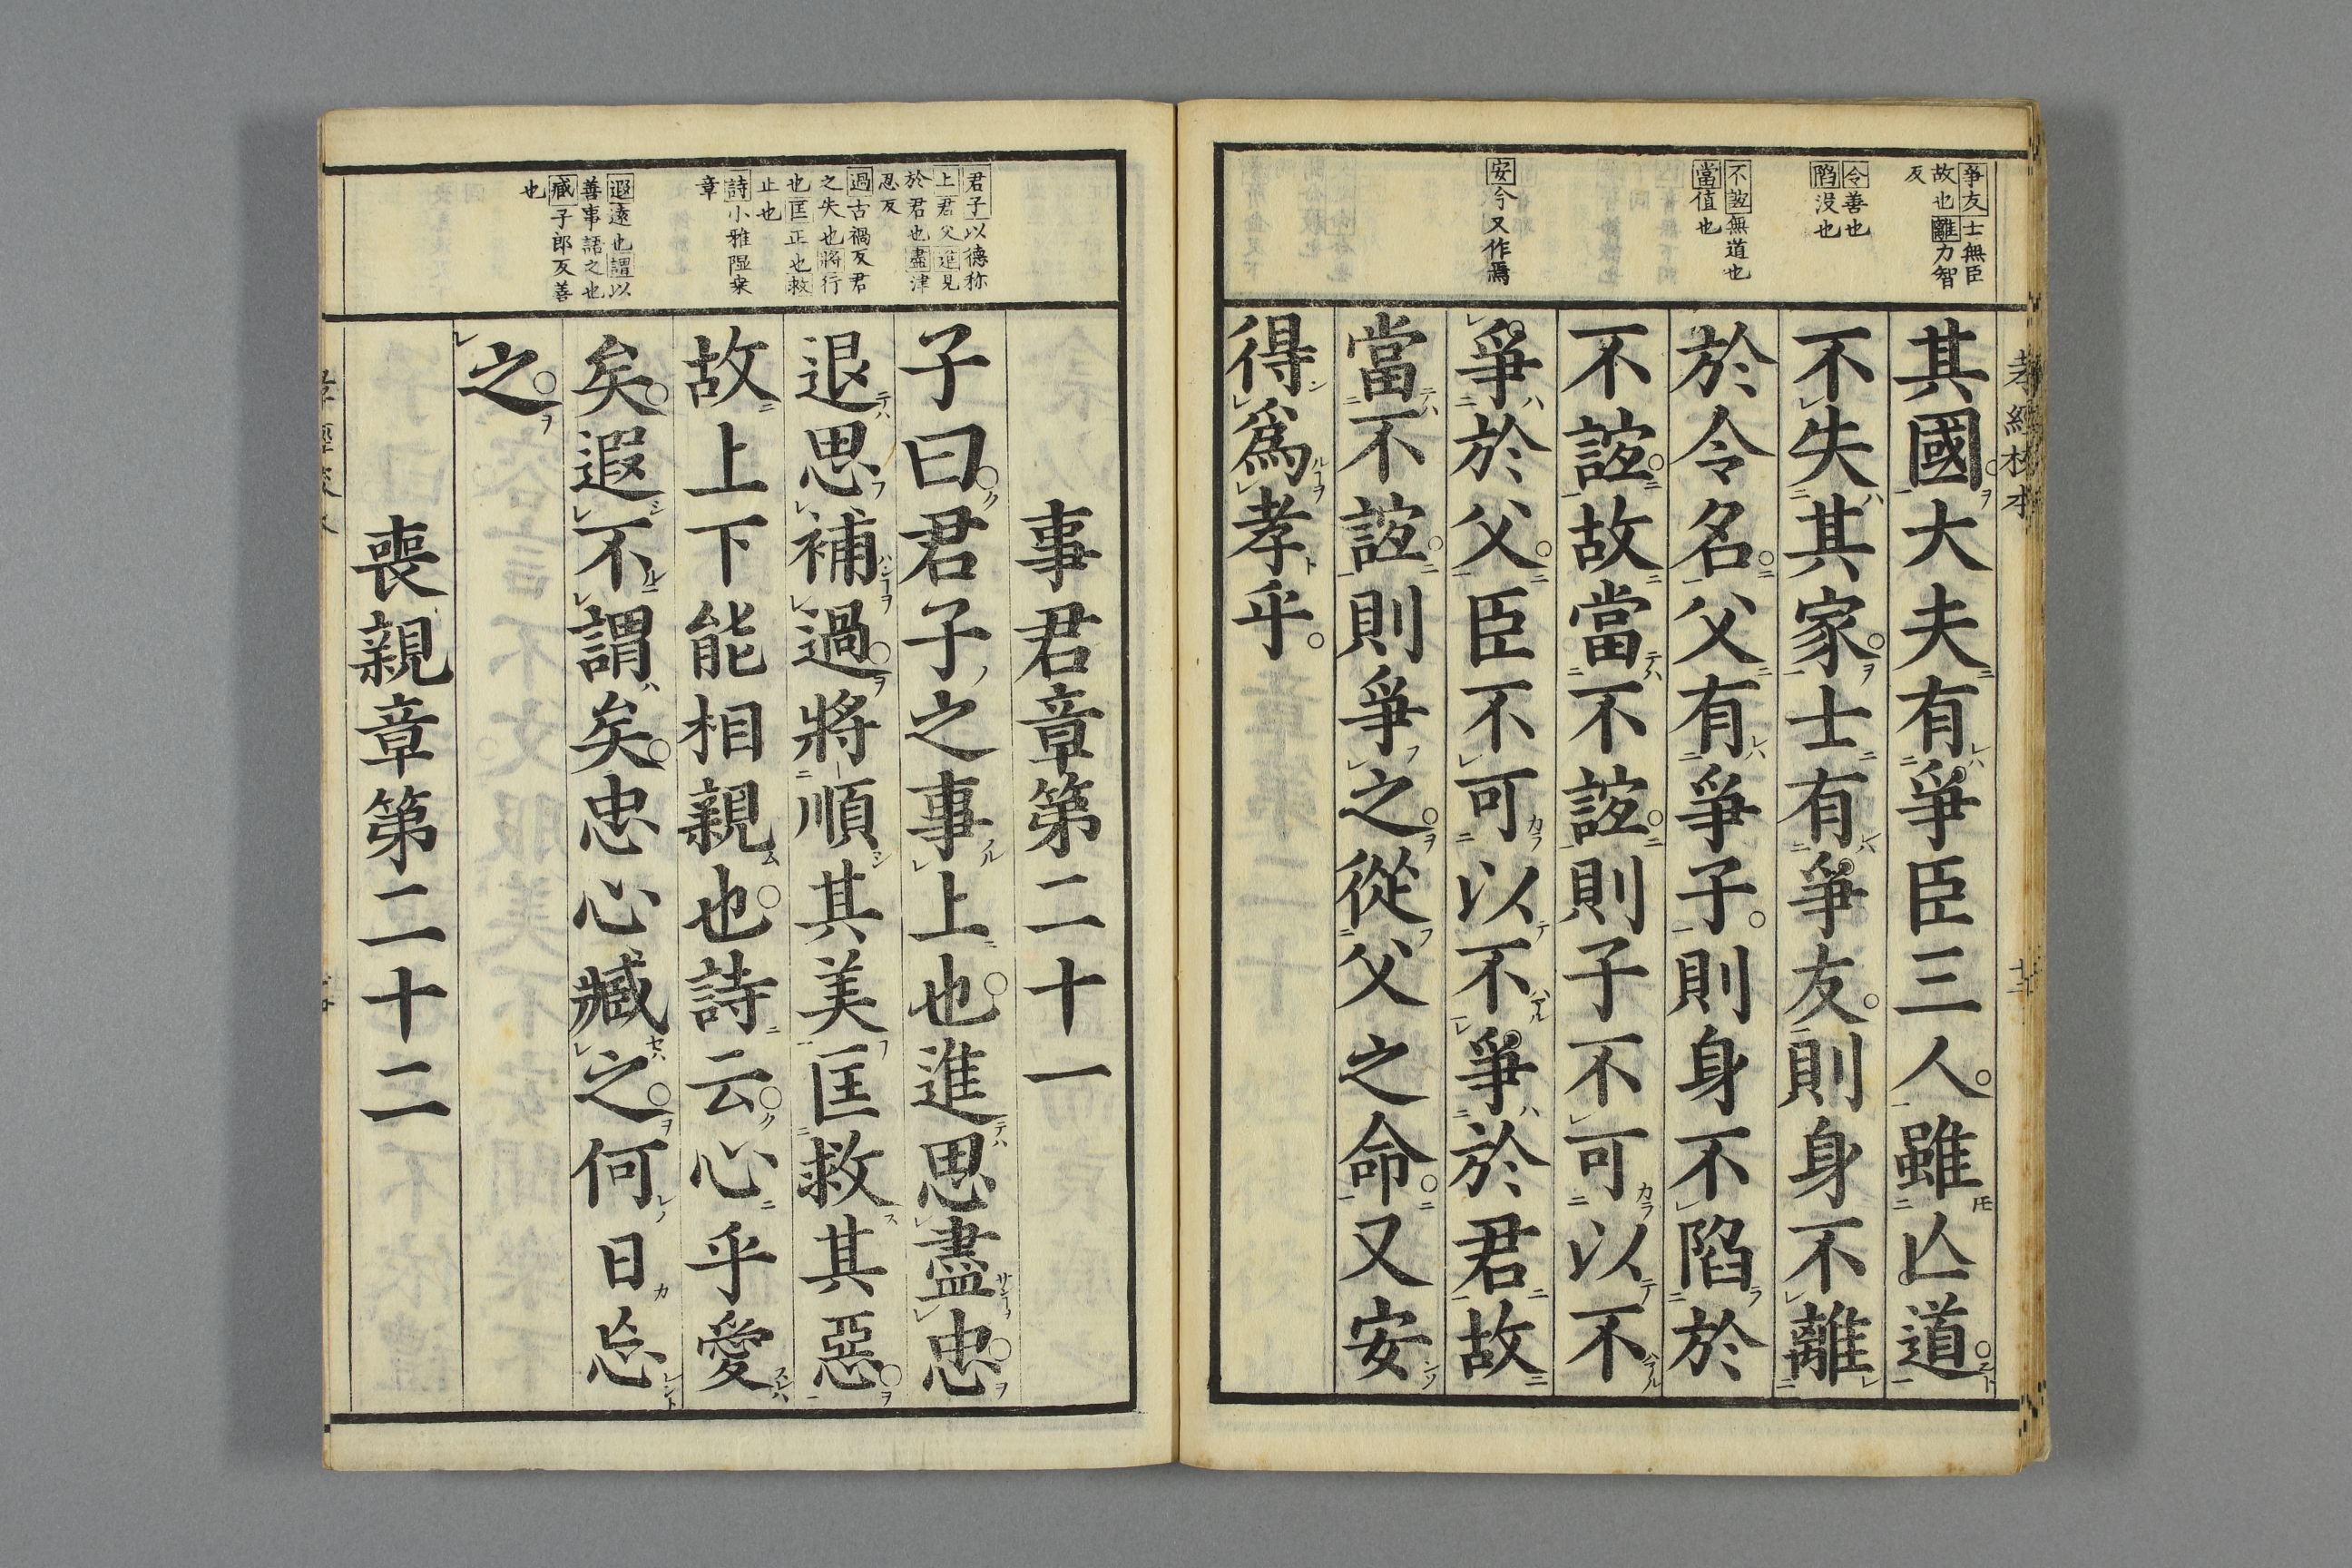 爭友士無臣
故也離力智
反
令善也
陷没也
不誼無道也
當值也
安今又作焉
其國大夫有爭臣三人雖亾道
不失其家士有爭友則身不離
於令名父有爭子則身不陷於
不誼故當不誼則子不可以不
爭於父臣不可以不爭於君故
當不誼則爭之從父之命又安
得爲孝乎
君子以德称
上君父進見
於君也盡津
忍反
過古禍反君
之失也將行
也匡正也救
止也
詩小雅隰桒
章
遐遠也謂以
善事語之也
臧子郎反善
也
事君章第二十一
子曰君子之事上也進思盡忠
退思補過將順其美匡救其惡
故上下能相親也詩云心乎愛
矣遐不謂矣忠心臧之何日忘
之
喪親章第二十二